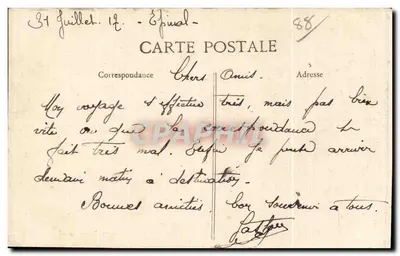 31 Juillet 12. - Epinal -
88
CARTE POSTALE
Correspondance
Adresse
Chers Amis.
Mon voyage s'effectue très, mais pas bien
vite vu que la correspondance se
fait très mal. Enfin je pense arriver
demain matin à destination.
Bonnes amitiés. bon souvenir à tous.